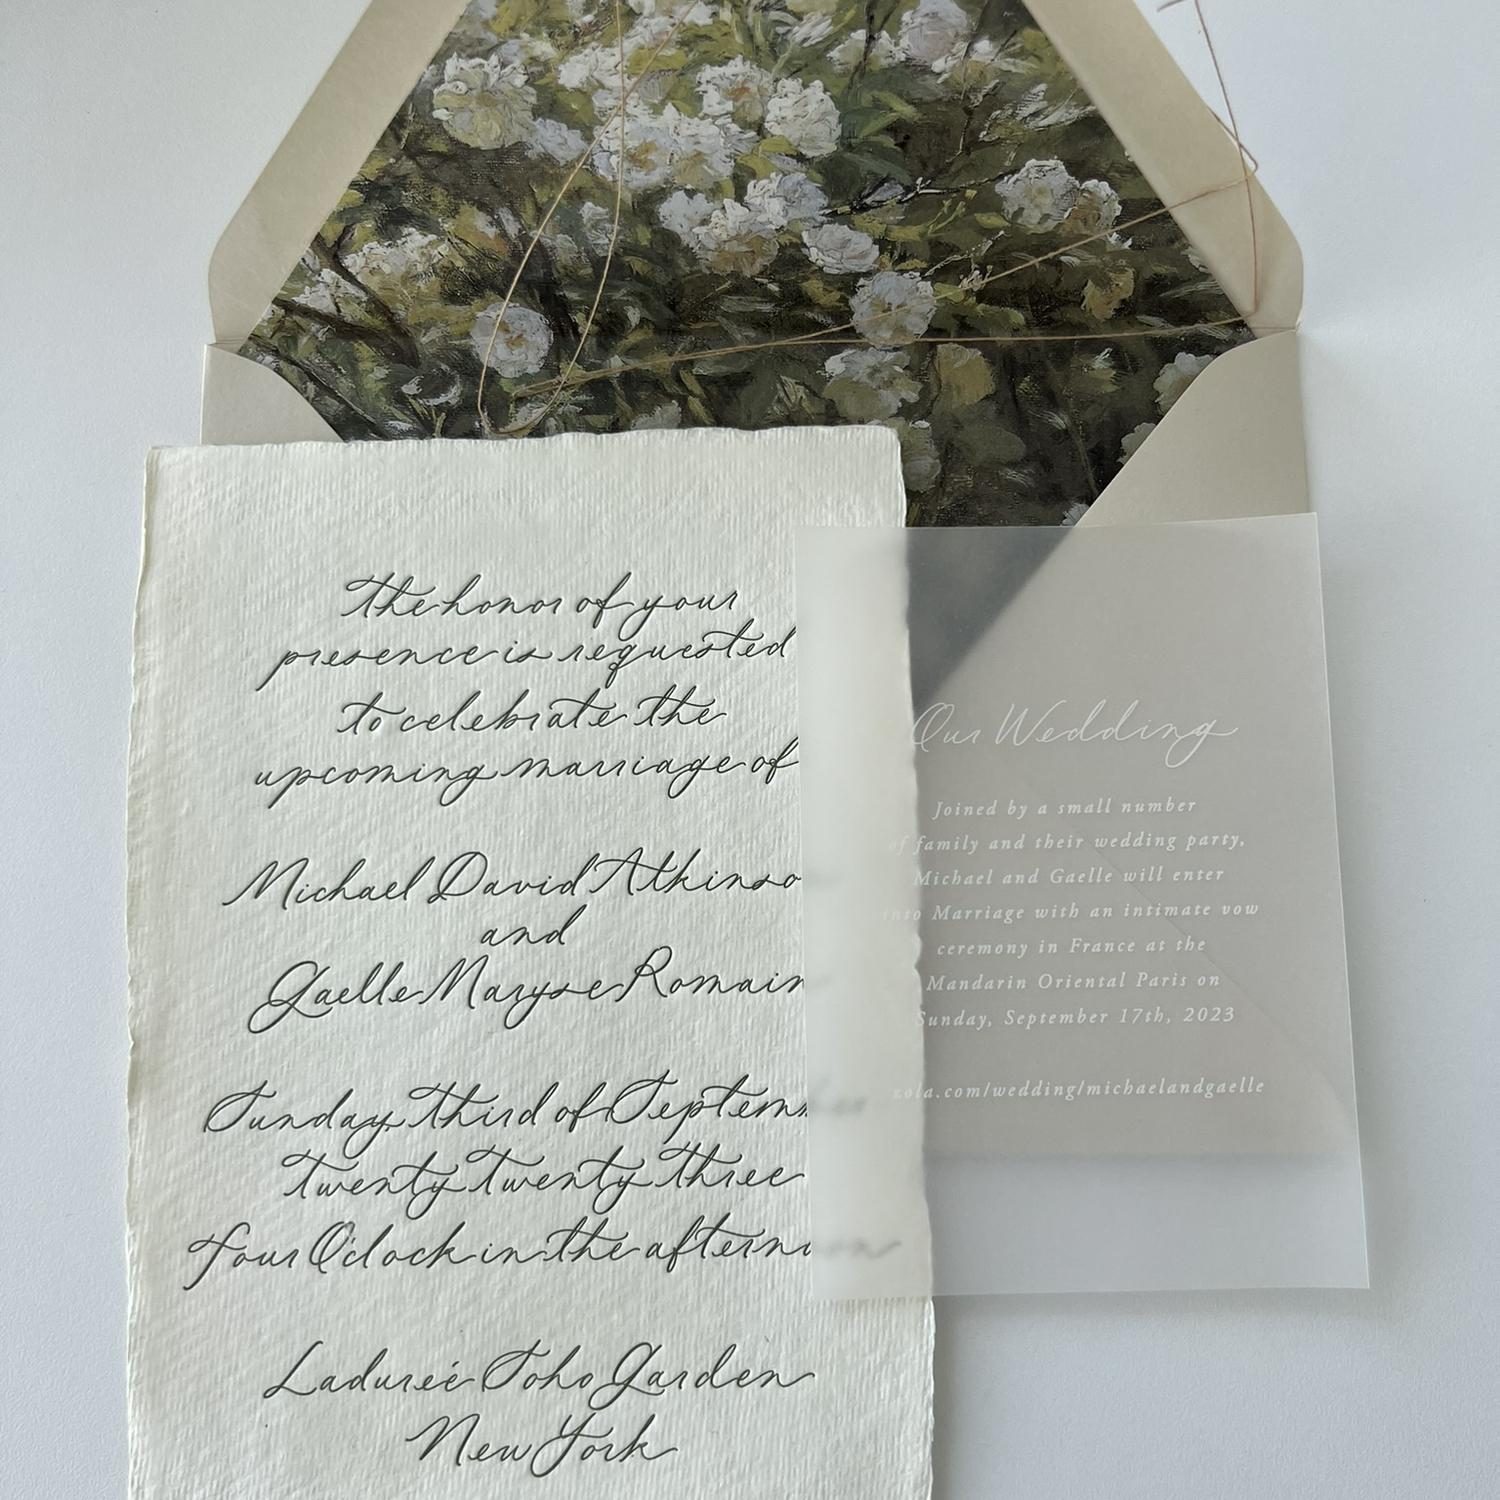 the honor of your
presence is requested
to celebrate the
upcoming marriage of
Michael David Atkinso
and
Gaelle Maryse Romain
Sunday, Third of September
Twenty Twenty three
Four O'clock in the afternoon
Ladureé Soho Garden
New York
Our Wedding
Joined by a small number
of family and their wedding party,
Michael and Gaelle will enter
into Marriage with an intimate vow
ceremony in France at the
Mandarin Oriental Paris on
Sunday, September 17th, 2023
zola.com/wedding/michaelandgaelle